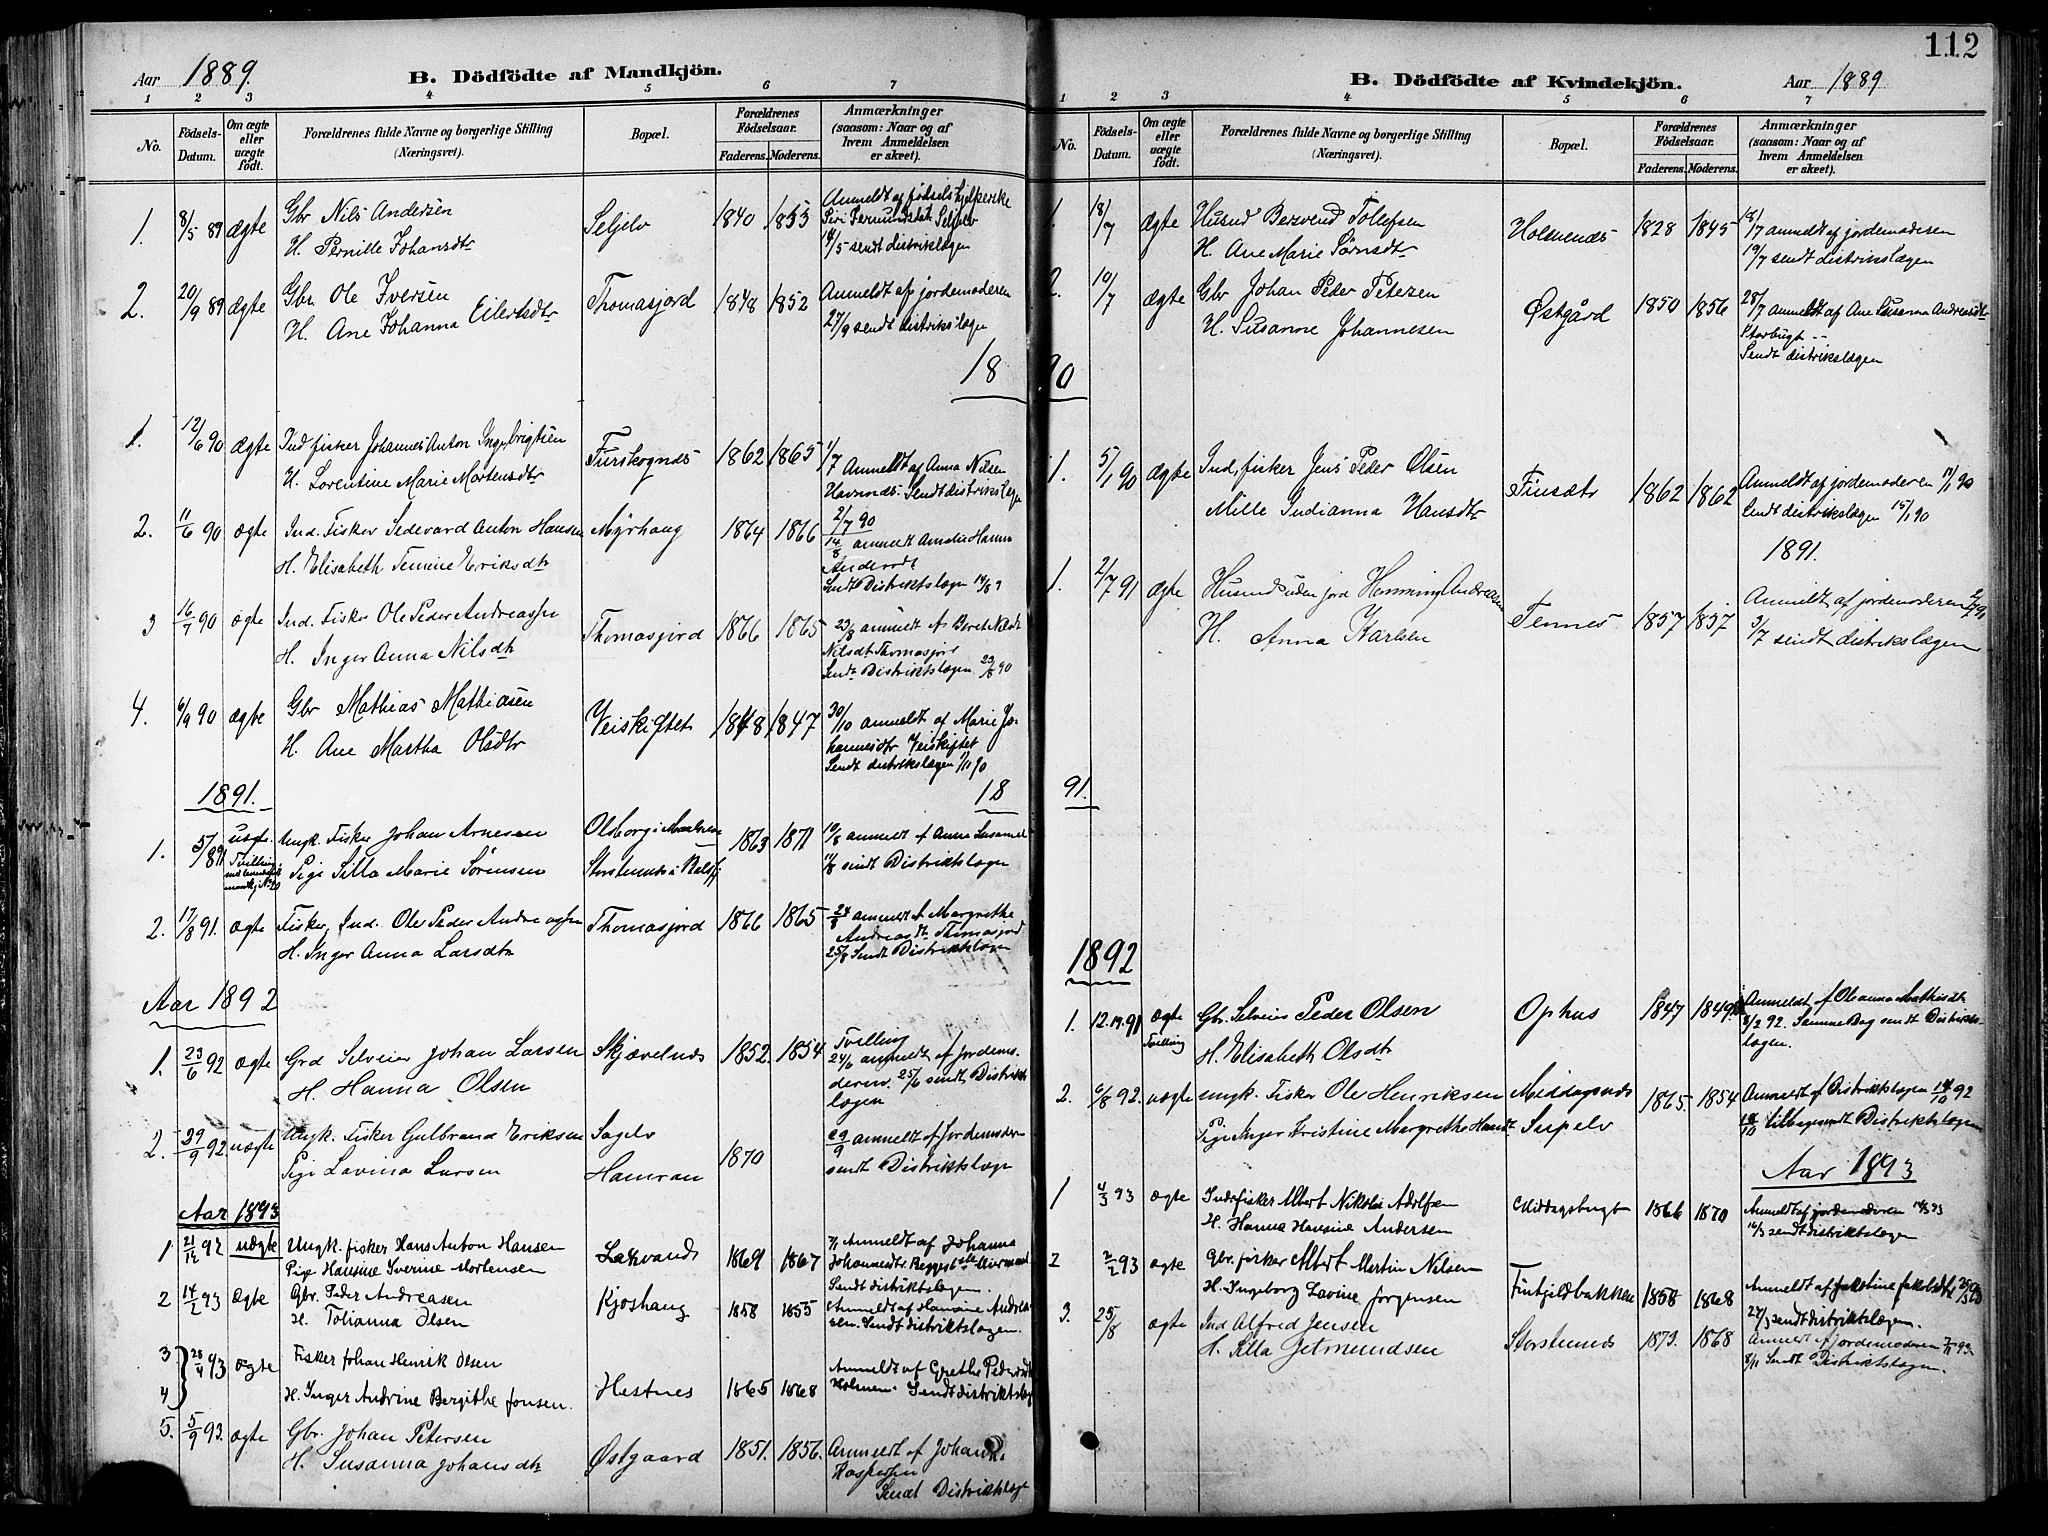 112
Aar 1889.
B. Dödfödte af Mandkjön.
1 2 3 4 5 6 7
No.
Födsels-
Datum.
Om ægte
eller
uægte
födt.
Forældrenes fulde Navne og borgerlige Stilling
(Næringsvei).
Bopæl.
Forældrenes
Födselsaar.
Faderens. Moderens.
Anmærkninger
(saasom: Naar og af
hvem Anmeldelsen
er skeet).
1. 8/5 89 ægte Gbr Nils Andersen Seljelv 1840 1853 Anmeldt af fødselshjelperske
H. Pernille Johansdtr
14/5 sendt distrikslægen
2. 20/9 89 ægte Gbr. Ole Iversen Thomasjord 1848 1852 Anmeldt af jordemoderen
H. Ane Johanna Eilertsdtr 27/9 sendt distrikslægen
18
1. 12/6 90 ægte Ind fisker Johannes Anton Ingebrigtsen 1862 1865 1/7 Anmeldt af Anna Nilsen
H. Lorentine Marie Mortensdtr Havnnæs. Sendt distrikslægen
2. 11/6 90 ægte Ind. Fisker Sedevard Anton Hansen Myrhaug 1864 1866 2/7 90
H. Elisabeth Eriksdtr
Sendt Distriktslægen 14/8
3 16/7 90 ægte Ind. Fisker Ole Peder Andreassen Thomasjord 1866 1865 23/8 anmeldt af Beret
H. Inger Anna Nilsdtr Nilsdt Thomasjord
Sendt Distriktslægen 23/8 90
4. 6/9 90 ægte Gbr Mathias Mathiasen Veiskiftet 1848 1847 30/10 anmeldt af Marie Jo-
H. Ane Martha Olsdtr hannesdtr Veiskiftet
Sendt distrikslægen 1/11 90
1891. 18
1. 5/8 91 uægte. Ungk. Fisker Johan Arnesen Olsborg i Maalselven 1863 1871 10/8 anmeldt af Anna
Tvilling Pige Silla Marie Sörensen Storstennes i Balsfj sendt Distriktslægen
2. 17/8 91. ægte Fisker, Ind. Ole Peder Andreassen Thomasjord 1866 1865 24/8 anmeldt af Margrethe
H. Inger Anna Larsdtr Andreasdt. Thomasjord
25/8 Sendt Distriktslægen
Aar 1892
1. 23/6 92 ægte Grd Selveier Johan Larsen Skjævelnes 1852 1854 Tvilling
H. Hanna Olsen 24/6 anmeldt af jordemo-
deren. 25/6 sendt Distrikts
lægen
2. 29/9 92 uægte Ungk. Fisker Gulbrand Eriksen Sagelv 1870 29/9 anmeldt af jordemoder
Pige Lavina Larsen Hamran sendt Distriktslæge
Aar 1893
1 21/12 92 uægte Ungk. fisker Hans Anton Hansen Laxvand 1869 1867 Anmeldt af Johanna
Pige Hansine Sverine Mortensen
Sendt distriktslægen.
2 14/2 93 ægte Gbr. Peder Andreasen Kjoshaug 1858 1855 Anmeldt af Hansine Andrea-
H. Tolianna Olsen sen. Sendt distriktslægen.
3
4 28/4 93 ægte Fisker Johan Henrik Olsen Hestnes 1865 1868 Anmeldt af Grethe Pedersdt
H. Inger Andrine Bergithe Jonsen. Holmen. Sendt distriktslæg
5. 5/9 93. ægte Gbr. Johan Petersen Østgaard 1851. 1856. Anmeldt af Johan
H. Susanna Johansdtr
Sendt Distriktslæge
B. Dödfödte af Kvindekjön.
Aar 1889
1 2 3 4 5 6 7
No.
Födsels-
Datum.
Om ægte
eller
uægte
födt.
Forældrenes fulde Navne og borgerlige Stilling
(Næringsvei).
Bopæl.
Forældrenes
Födselsaar.
Faderens. Moderens.
Anmærkninger
(saasom: Naar og af
hvem Anmeldelsen
er skeet).
1. 18/7 ægte Husmd Berzvend Tolefsen Holmenæs 1828 1845 18/7 anmeldt af jordemoderen
H. Ane Marie Sørnsdtr 19/7 sendt distrikslægen
2. 10/7 ægte Gbr Johan Peder Petersen Østgård 1850 1856 28/7 anmeldt af Ane Susanna Andreasdtr
H. Susanne Johannesen Storbugt --
Sendt distrikslægen
90
1. 5/1 90 ægte Ind, fisker Jens Peder Olsen Finsæt 1862 1862 Anmeldt af jordemoderen 14/1 90
Mille Indianna Hansdtr Sendt distrikslægen 15/1 90
1891.
1. 2/7 91 ægte Husmd uden jord Henning Andreasen Tennes 1857 1857 Anmeldt af jordemoderen 2/7 91
H. Anna Karlsen 3/7 sendt distrikslægen
91.
1892
1. 12.19.91 ægte Gbr. Selveier Peder Olsen Ophus 1847 1849 Anmeldt af Oleanna Mathisdt
Tvilling H. Elisabeth Olsdtr 8/2 92. Samme Dag sendt Distrikts-
lægen.
2. 6/8 92. uægte ungk. Fisker Ole Henriksen Middagsnes 1865. 1854 Anmeldt af Distriktslægen 14/10 92
Pige Inger Kristine Margrethe Hansdt Seipelv 18/10 tilbagesendt Distriktslægen
Aar 1893
1 4/3 93 ægte Ind. fisker Albert Nikolai Adolfsen Middagsbugt 1866 1870 Anmeldt af jordemoderen 14/3 93
H. Hanna Hansine Andersen 16/3 sendt distriktslægen
2 2/2 93 ægte Gbr. fisker Albert Martin Nilsen Finfjeldbakken 1858 1868 Anmeldt af
H. Ingeborg Lavine Jørgensen 27/3 sendt distriktslægen.
3. 25/8 ægte Ind Alfred Jensen Storstennes 1873. 1868 Anmeldt af jordemoderen 7/11 93.
H. Silla Jetmundsen 8/11 Sendt Distriktslægen.